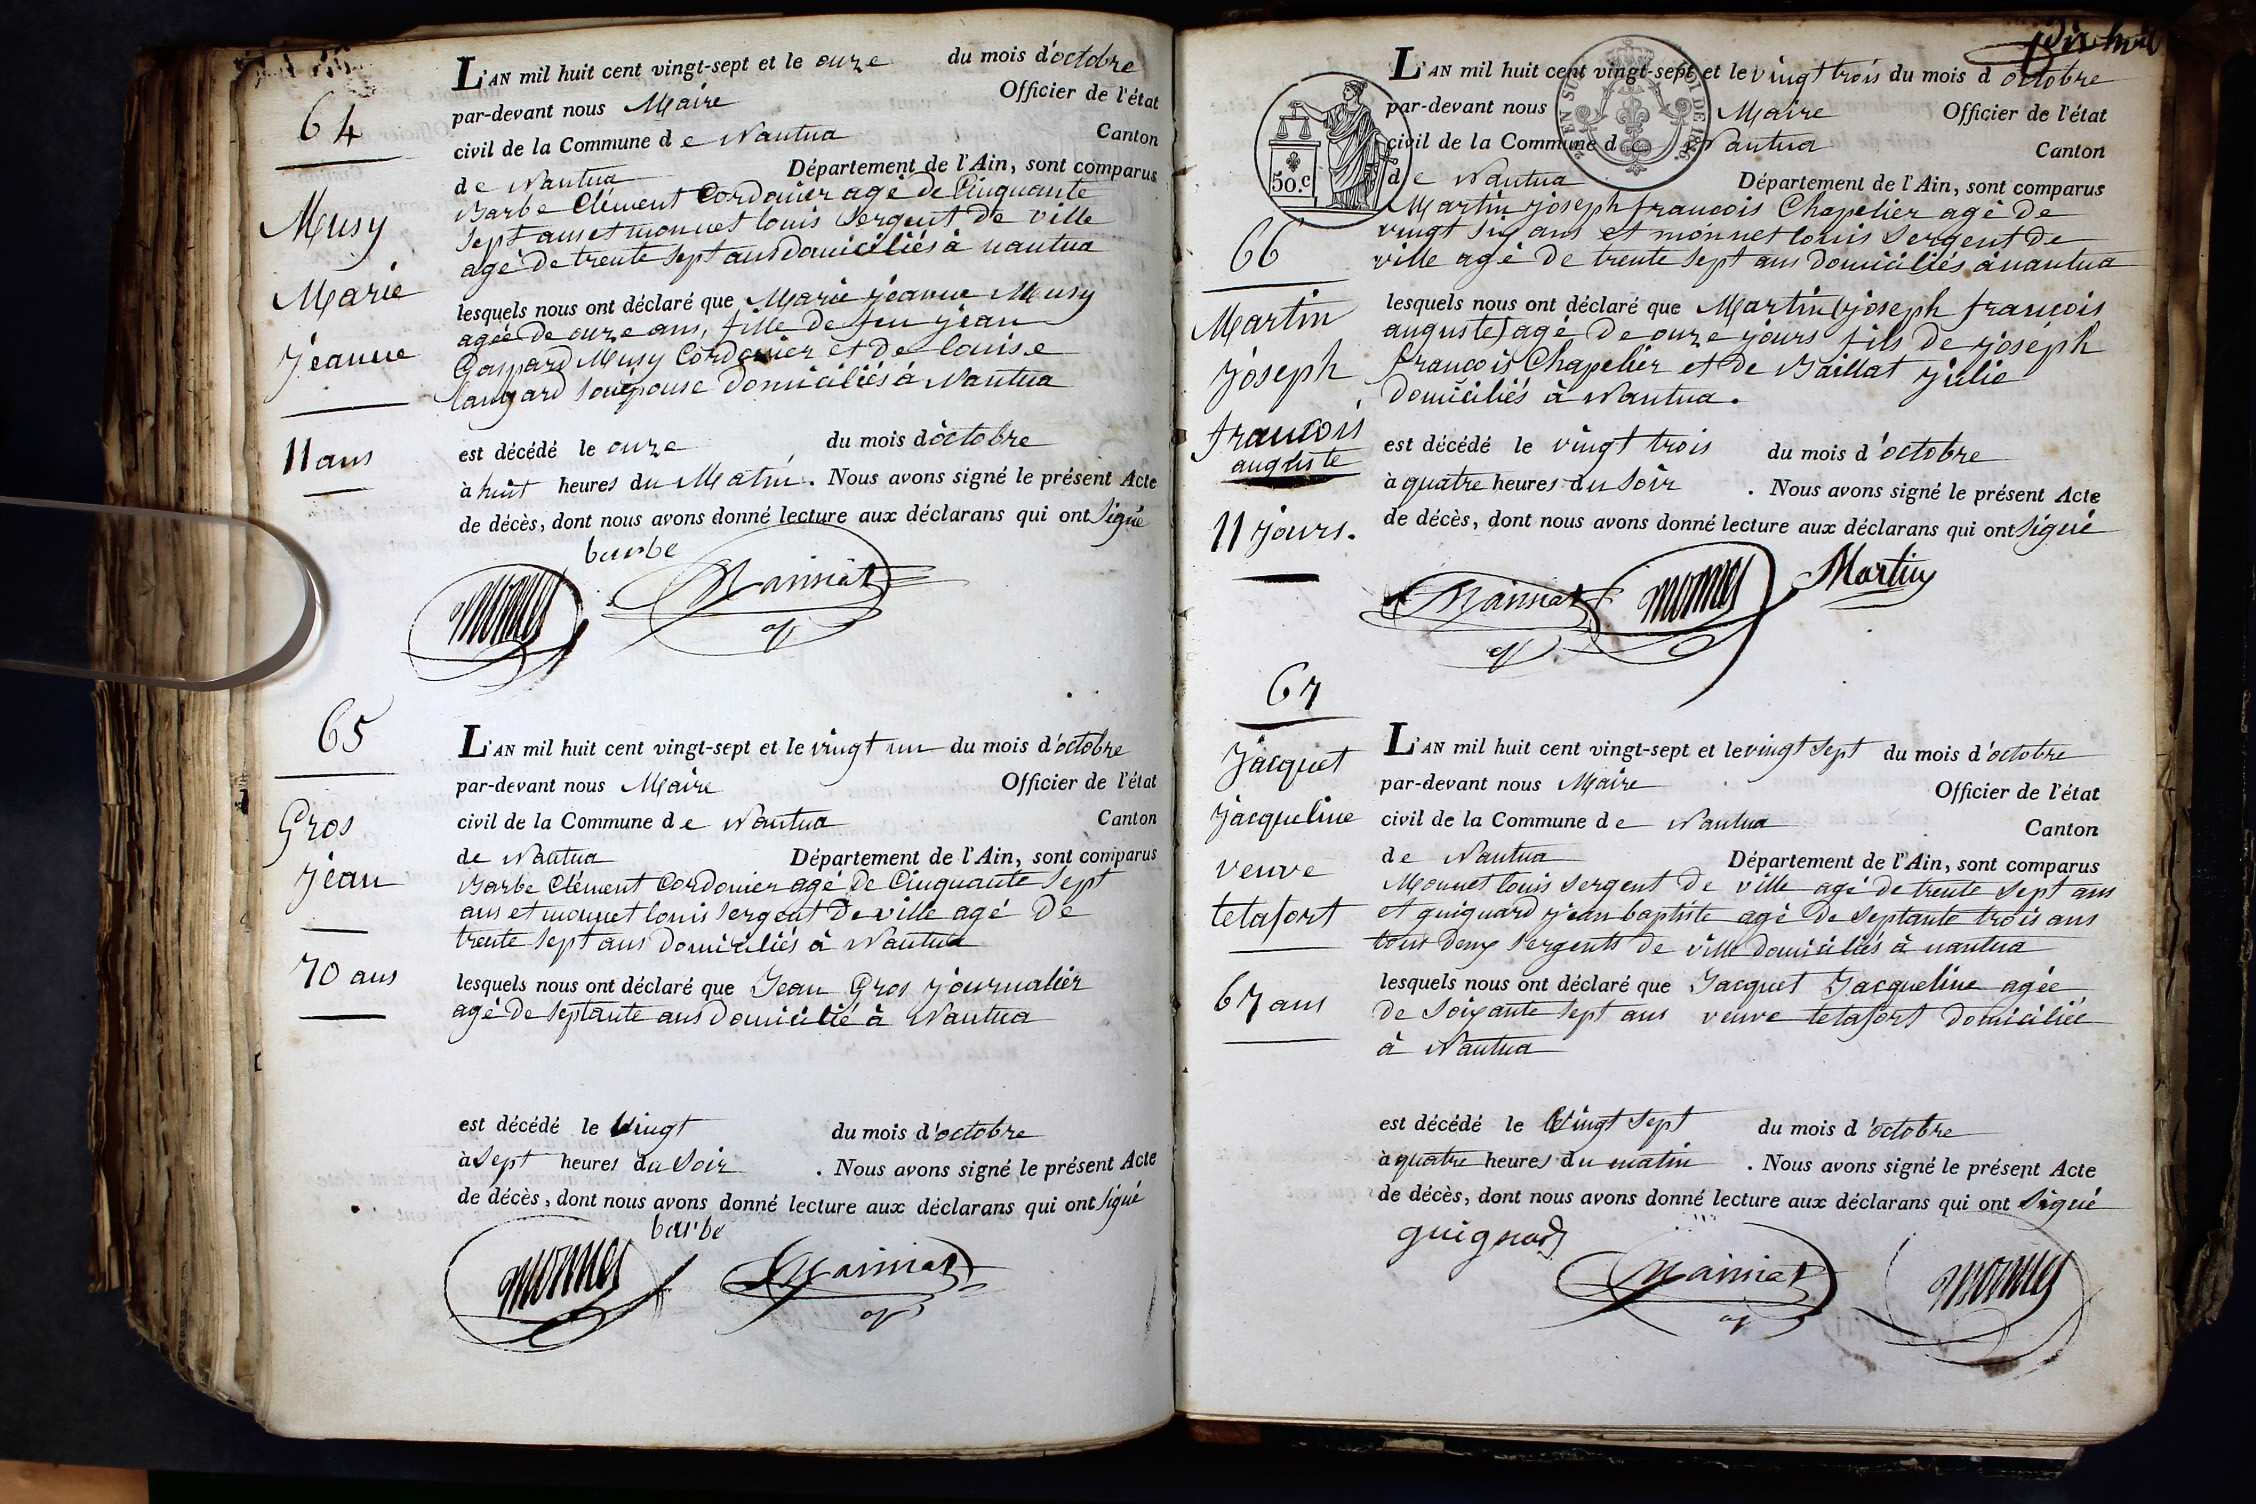 64
Musy
Marie
jeanne
11 ans
L'AN mil huit cent vingt-sept et le onze du mois d'octobre
par-devant nous Maire Officier de l'état
civil de la Commune de Nantua Canton
de Nantua Département de l'Ain, sont comparus
Barbe Clément Cordonier agé de Cinquante
Sept ans et monnet louis Sergent de ville
agé de trente Sept ans domiciliés à nantua
lesquels nous ont déclaré que Marie jeanne Musy
agée de onze ans, fille de feu jean
Gaspard Musy Cordonier et de louise
lançard son épouse domiciliés à Nantua
est décédé le onze du mois d'octobre
à huit heures du Matin. Nous avons signé le présent Acte
de décès, dont nous avons donné lecture aux déclarans qui ont Signé
barbe
monnet
65
Gros
jean
70 ans
L'AN mil huit cent vingt-sept et le vingt un du mois d'octobre
par-devant nous Maire Officier de l'état
civil de la Commune de Nantua Canton
de Nantua Département de l'Ain, sont comparus
Barbe Clément Cordonier agé de Cinquante Sept
ans et monnet louis Sergent de ville agé de
trente Sept ans domiciliés à Nantua
lesquels nous ont déclaré que Jean Gros journalier
agé de Septante ans domicilié à Nantua
est décédé le Vingt du mois d'octobre
à Sept heures du Soir. Nous avons signé le présent Acte
de décès, dont nous avons donné lecture aux déclarans qui ont Signé
barbe
monnet
50.c
66
Martin
joseph
francois
auguste
11 jours.
L'AN mil huit cent vingt-sept et le vingt trois du mois d octobre
par-devant nous Maire Officier de l'état
civil de la Commune de Nantua Canton
de Nantua Département de l'Ain, sont comparus
Martin joseph francois Chapelier agé de
vingt Six ans et monnet louis Sergent de
ville agé de trente Sept ans domiciliés à nantua
lesquels nous ont déclaré que Martin (joseph francois
auguste) agé de onze jours fils de joseph
francois Chapelier et de Baillat julie
domiciliés à Nantua.
est décédé le vingt trois du mois d'octobre
à quatre heures du Soir. Nous avons signé le présent Acte
de décès, dont nous avons donné lecture aux déclarans qui ont Signé
monnet Martin
67
Jacquet
jacqueline
veuve
tetafort
67 ans
L'AN mil huit cent vingt-sept et le vingt Sept du mois d'octobre
par-devant nous Maire Officier de l'état
civil de la Commune de Nantua Canton
de Nantua Département de l'Ain, sont comparus
Monnet louis Sergent de ville agé de trente Sept ans
et guignard jean baptiste agé de Septante trois ans
tout deux Sergents de ville domiciliés à nantua
lesquels nous ont déclaré que Jacquet Jacqueline agée
de Soixante Sept ans veuve tetafort domiciliée
à Nantua
est décédé le Vingt Sept du mois d'octobre
à quatre heures du matin. Nous avons signé le présent Acte
de décès, dont nous avons donné lecture aux déclarans qui ont Signé
guignard
monnet